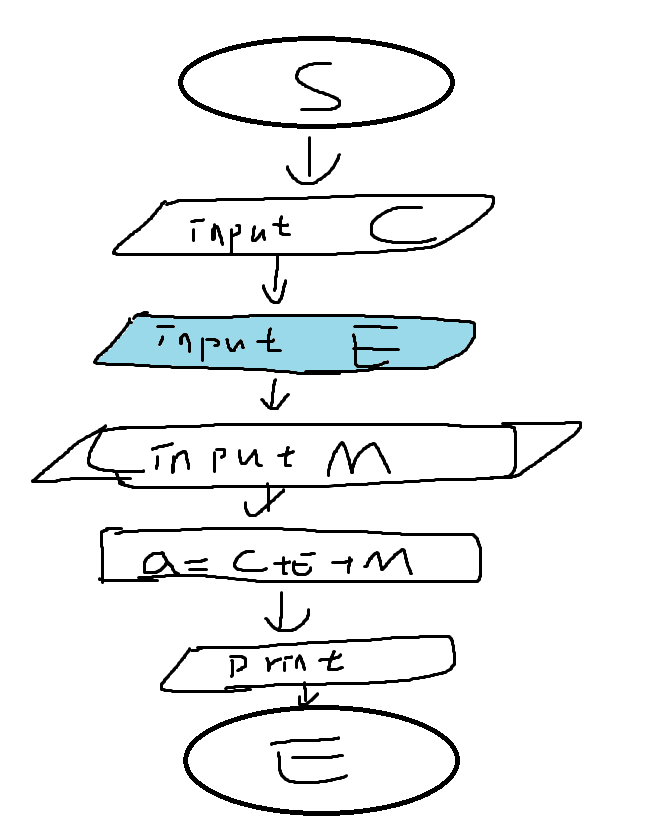 S
input C
input E
input M
a= C+E+M
print
E